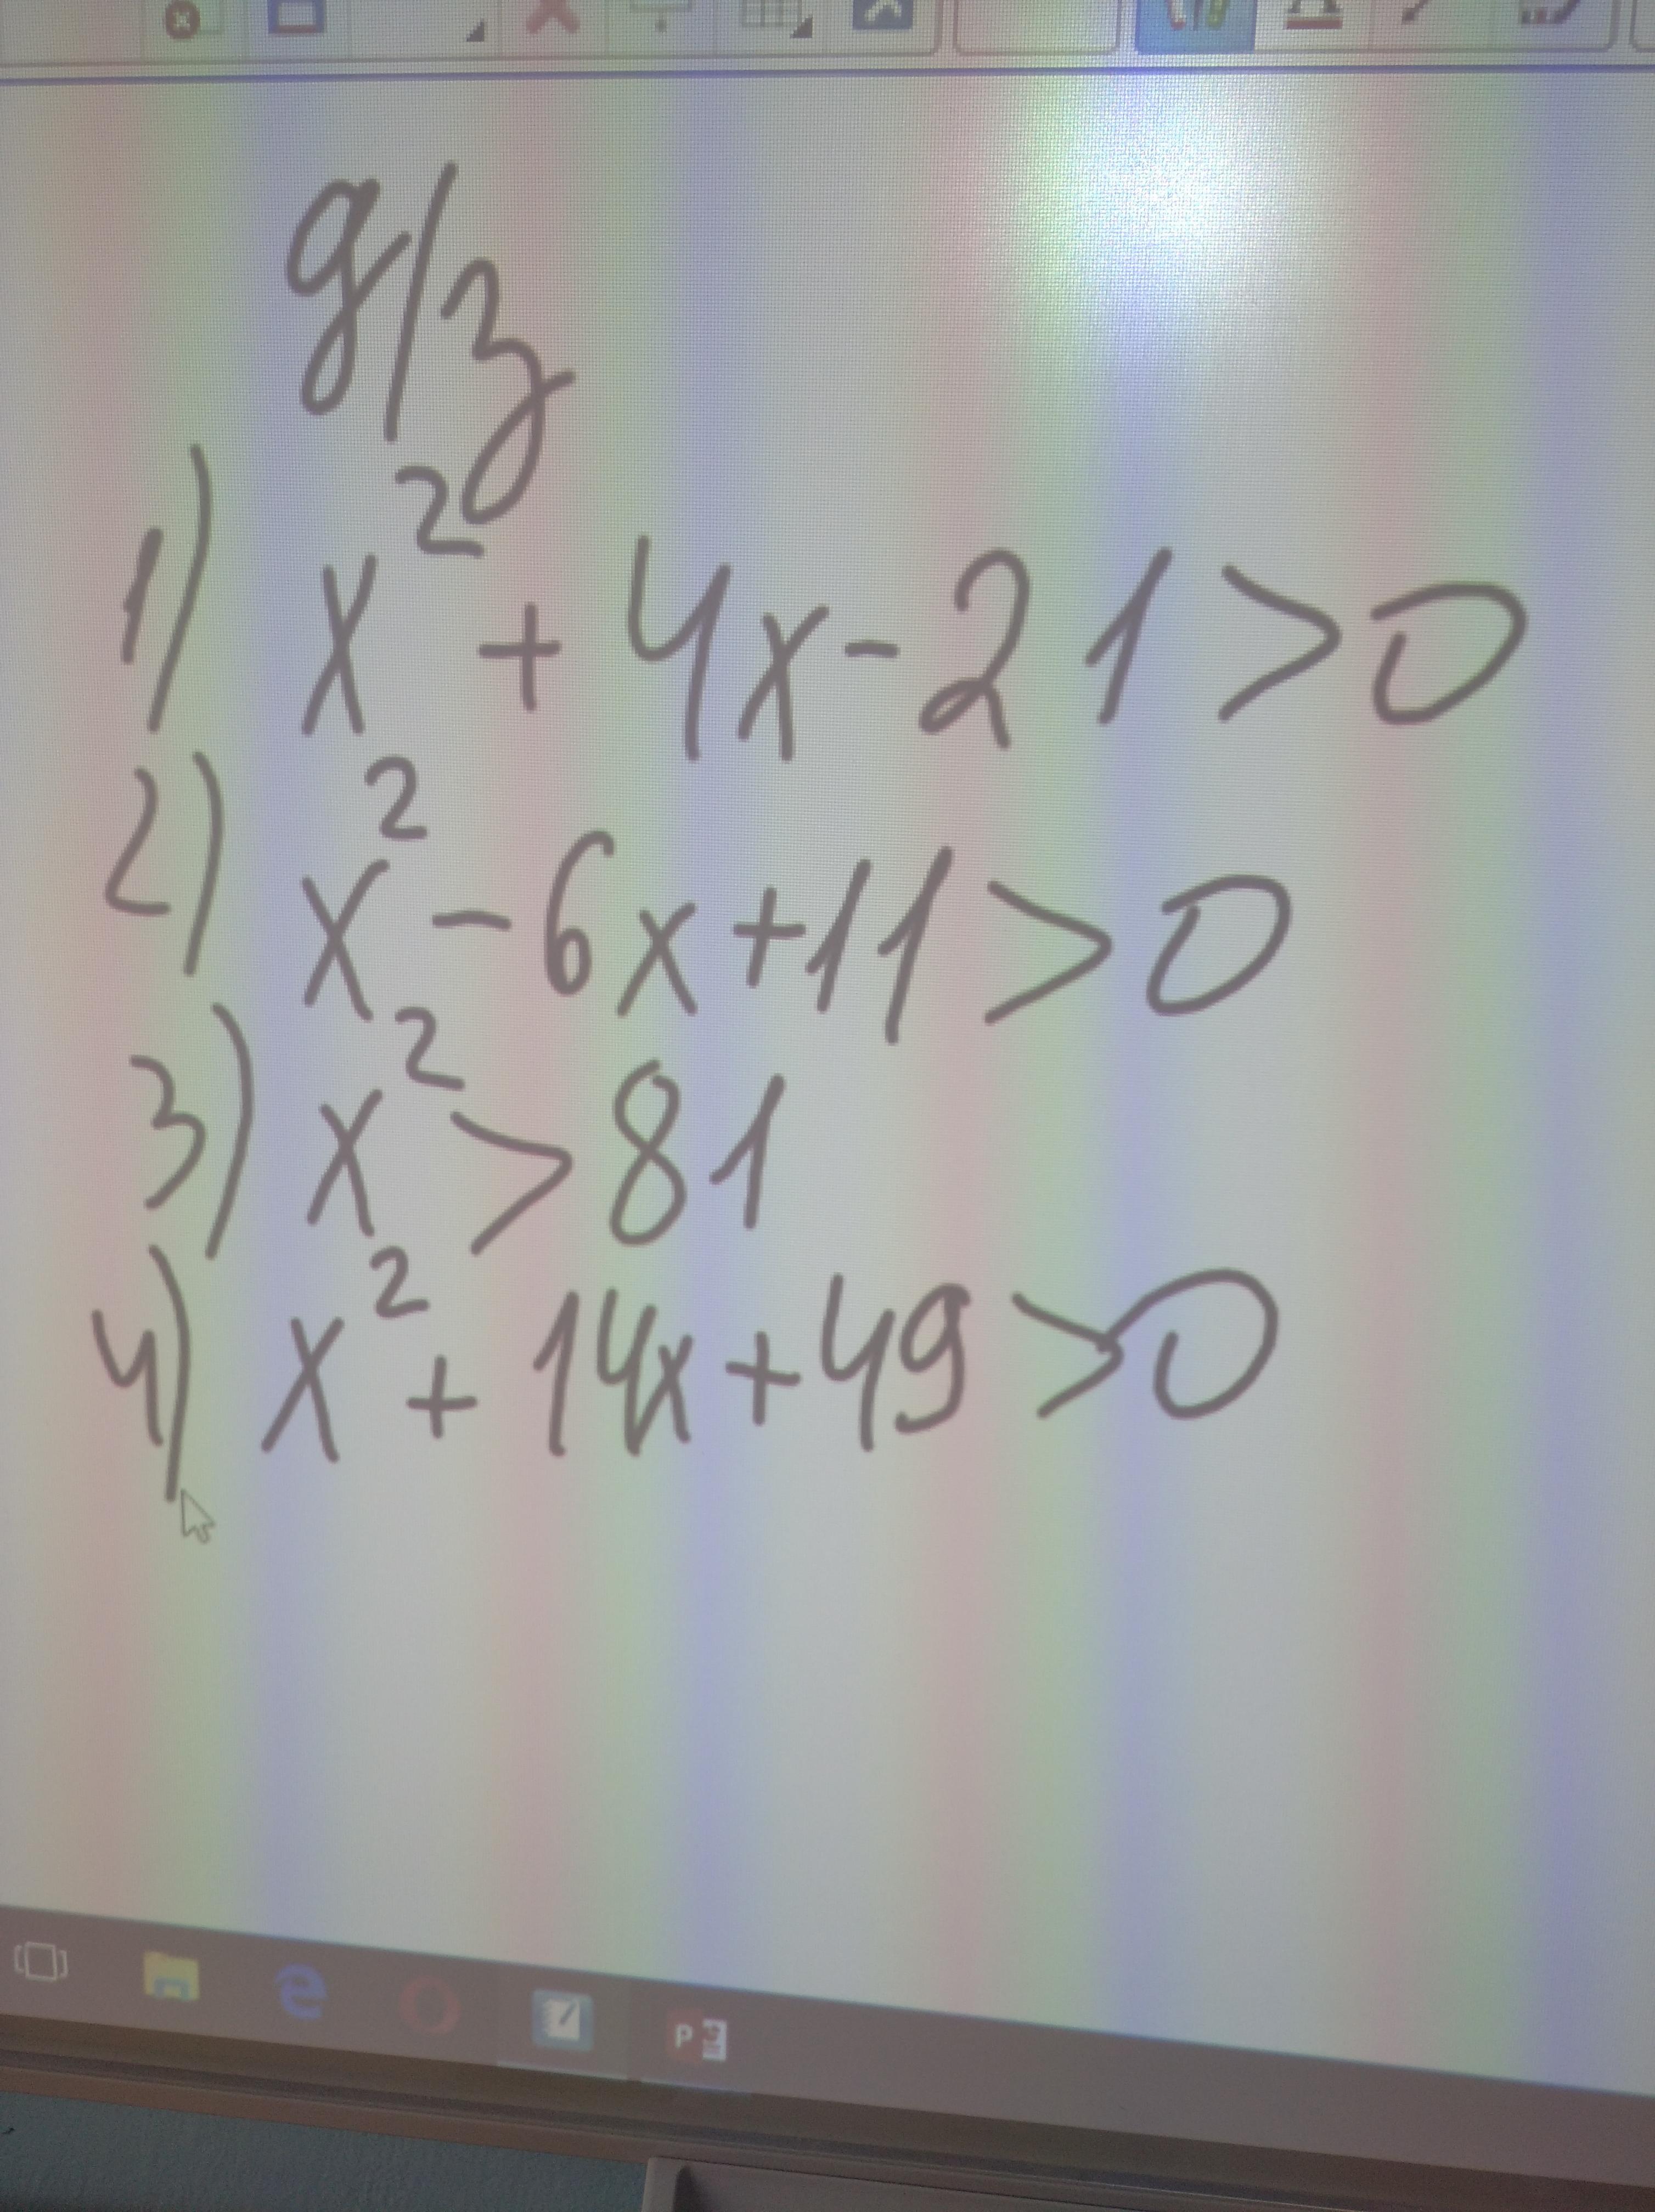 д/з
1) x² + 4x - 21 > 0
2) x² - 6x + 11 > 0
3) x² > 81
4) x² + 14x + 49 > 0